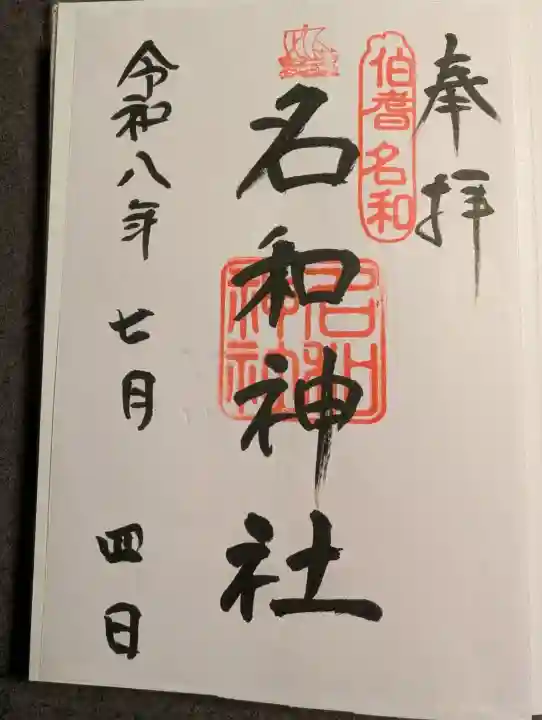 奉拝
伯耆名和
名和神社
名和神社
令和八年 七月 四日